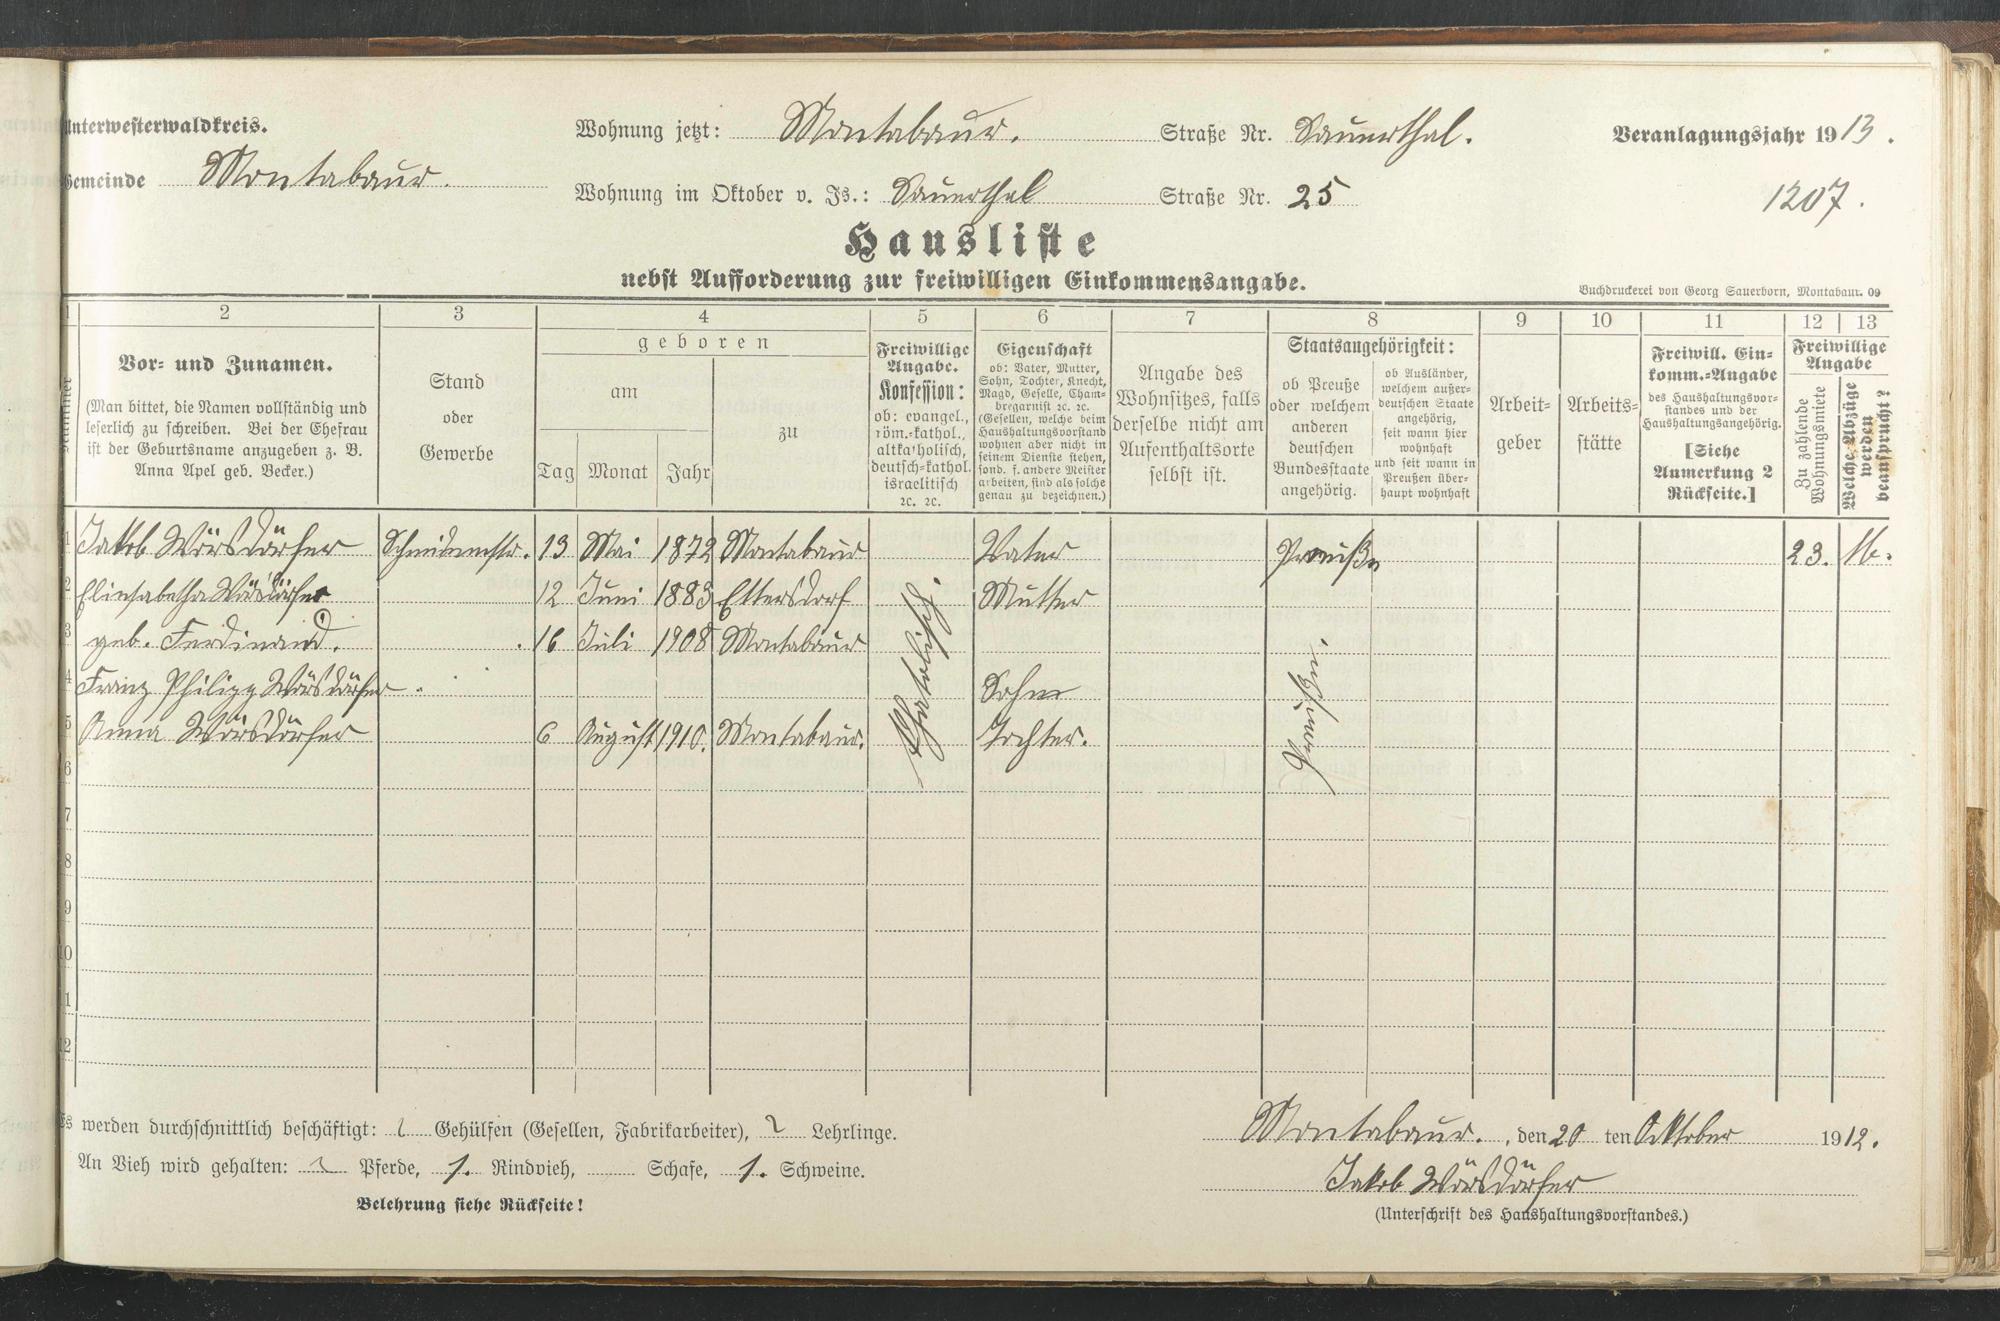 Unterwesterwaldkreis.
Wohnung jetzt: Montabaur. Straße Nr. Sauerthal.
Veranlagungsjahr 1913.
Gemeinde Montabaur.
Wohnung im Oktober v. Js.: Sauerthal Straße Nr. 25
1207.
Hausliste
nebst Aufforderung zur freiwilligen Einkommensangabe.
Buchdruckerei von Georg Sauerborn, Montabaur. 09
1 2 3 4 5 6 7 8 9 10 11 12 13
Nummer
Vor- und Zunamen.
(Man bittet, die Namen vollständig und
leserlich zu schreiben. Bei der Ehefrau
ist der Geburtsname anzugeben z. B.
Anna Apel geb. Becker.)
Stand
oder
Gewerbe
geboren
am
zu
Tag Monat Jahr
Freiwillige
Angabe.
Konfession:
ob: evangel.,
röm.-kathol.,
altkatholisch,
deutsch-kathol.
israelitisch
ꝛc. ꝛc.
Eigenschaft
ob: Vater, Mutter,
Sohn, Tochter, Knecht,
Magd, Geselle, Cham-
bregarnist ꝛc. ꝛc.
(Gesellen, welche beim
Haushaltungsvorstand
wohnen aber nicht in
seinem Dienste stehen,
sond. f. andere Meister
arbeiten, sind als solche
genau zu bezeichnen.)
Angabe des
Wohnsitzes, falls
derselbe nicht am
Aufenthaltsorte
selbst ist.
Staatsangehörigkeit:
ob Preuße
oder welchem
anderen
deutschen
Bundesstaate
angehörig.
ob Ausländer,
welchem außer-
deutschen Staate
angehörig,
seit wann hier
wohnhaft
und seit wann in
Preußen über-
haupt wohnhaft
Arbeit-
geber
Arbeits-
stätte
Freiwill. Ein-
komm.-Angabe
des Haushaltungsvor-
standes und der
Haushaltungsangehörig.
[Siehe
Anmerkung 2
Rückseite.]
Freiwillige
Angabe
Zu zahlende
Wohnungsmiete
Welche Abzüge
werden
beansprucht?
1 Jakob Wörsdörfer Schreinermstr. 13 Mai 1872 Montabaur Vater Preuße 23. M.
2 Elisabetha Wörsdörfer 12 Juni 1883 Ettersdorf Mutter
3 geb. Ferdinand. 16 Juli 1908 Montabaur
4 Franz Philipp Wörsdörfer Sohn
5 Anna Wörsdörfer 6 August 1910. Montabaur. Tochter.
Khatolisch.
Preußen.
6
7
8
9
10
11
12
Es werden durchschnittlich beschäftigt: Gehülfen (Gesellen, Fabrikarbeiter), Lehrlinge.
An Vieh wird gehalten: Pferde, 1. Rindvieh, Schafe, 1. Schweine.
Belehrung siehe Rückseite!
Montabaur., den 20 ten Oktober 1912.
Jakob Wörsdörfer
(Unterschrift des Haushaltungsvorstandes.)